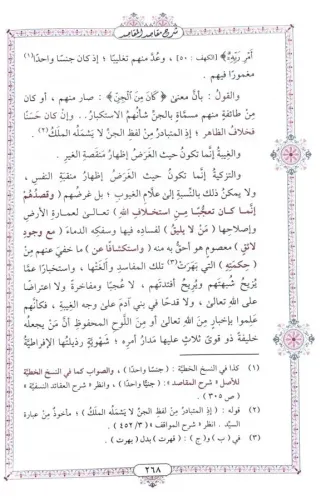 شرح مقاصد المقاصد
أَمْرِ رَبِّهِ﴾ [الكهف : ٥٠] ، وعُدَّ منهم تغليبًا ؛ إذ كان جنسًا واحدًا(١)
مغمورًا فيهم .
والقول : بأنَّ معنىٰ ﴿كَانَ مِنَ ٱلْجِنِّ﴾ : صار منهم ، أو كان
مِنْ طائفةٍ منهم مسمَّاةٍ بالجنِّ شأنُهمُ الاستكبارُ.. وإن كان حَسَنًا
فخلافُ الظاهر ؛ إذِ المتبادرُ مِنْ لفظِ الجنِّ لا يَشْمَلُهُ الملَكُ(٢) .
والغِيبةُ إنَّما تكونُ حيث الغَرَضُ إظهارُ مَنقَصةِ الغير .
والتزكيةُ إنَّما تكونُ حيث الغَرَضُ إظهارُ منقبةِ النفس ،
ولا يمكنُ ذلك بالنسبةِ إلىٰ علَّامِ الغيوبِ ؛ بل غرضُهم ( وقصدُهم
إنَّما كان تعجُّبًا مِنِ استخلافِ اللهِ ) تعالىٰ لعمارةِ الأرضِ
وإصلاحِها ( مَنْ لا يليقُ ) لفسادِه فيها وسفكِه الدماءَ ( مع وجودِ
لائقٍ ) معصومٍ هو أحقُّ به منه ( واستكشافًا عن ) ما خفيَ عنهم مِنْ
( حِكمتِهِ ) التي بَهَرَتْ(٣) تلك المفاسدَ وألغَتْها ، واستخبارًا عمَّا
يُزيحُ شبهتَهم ويُريحُ أفئدتَهم ، لا عُجبًا ومفاخرةً ولا اعتراضًا
على اللهِ تعالىٰ ، ولا قدحًا في بني آدمَ علىٰ وجهِ الغِيبةِ ، فكأنَّهم
عَلِموا بإخبارٍ مِنَ اللهِ تعالىٰ أو مِنَ اللَّوحِ المحفوظِ أنَّ مَنْ يجعلُه
خليفةً ذو قوىً ثلاثٍ عليها مَدارُ أمرِه ؛ شَهْويَّةٍ رذيلتُها الإفراطيَّةُ
(١) كذا في النسخ الخطيَّة : ( جنسًا واحدًا ) ، والصواب كما في النسخ الخطيَّة
للأصل « شرح المقاصد » : ( جنيًّا واحدًا ) ، وانظر « شرح العقائد النسفية »
( ص ٣٠٥ ) .
(٢) قوله : ( إذ المتبادرُ مِنْ لفظِ الجنِّ لا يَشْمَلُه الملَكُ ) ؛ مأخوذٌ مِنْ عبارة
السيِّد ، وانظر « شرح المواقف » ( ٤٥٢/٣ ) .
(٣) في ( ب ) و( ج ) : ( قهرت ) بدل ( بهرت ) .
٢٦٨